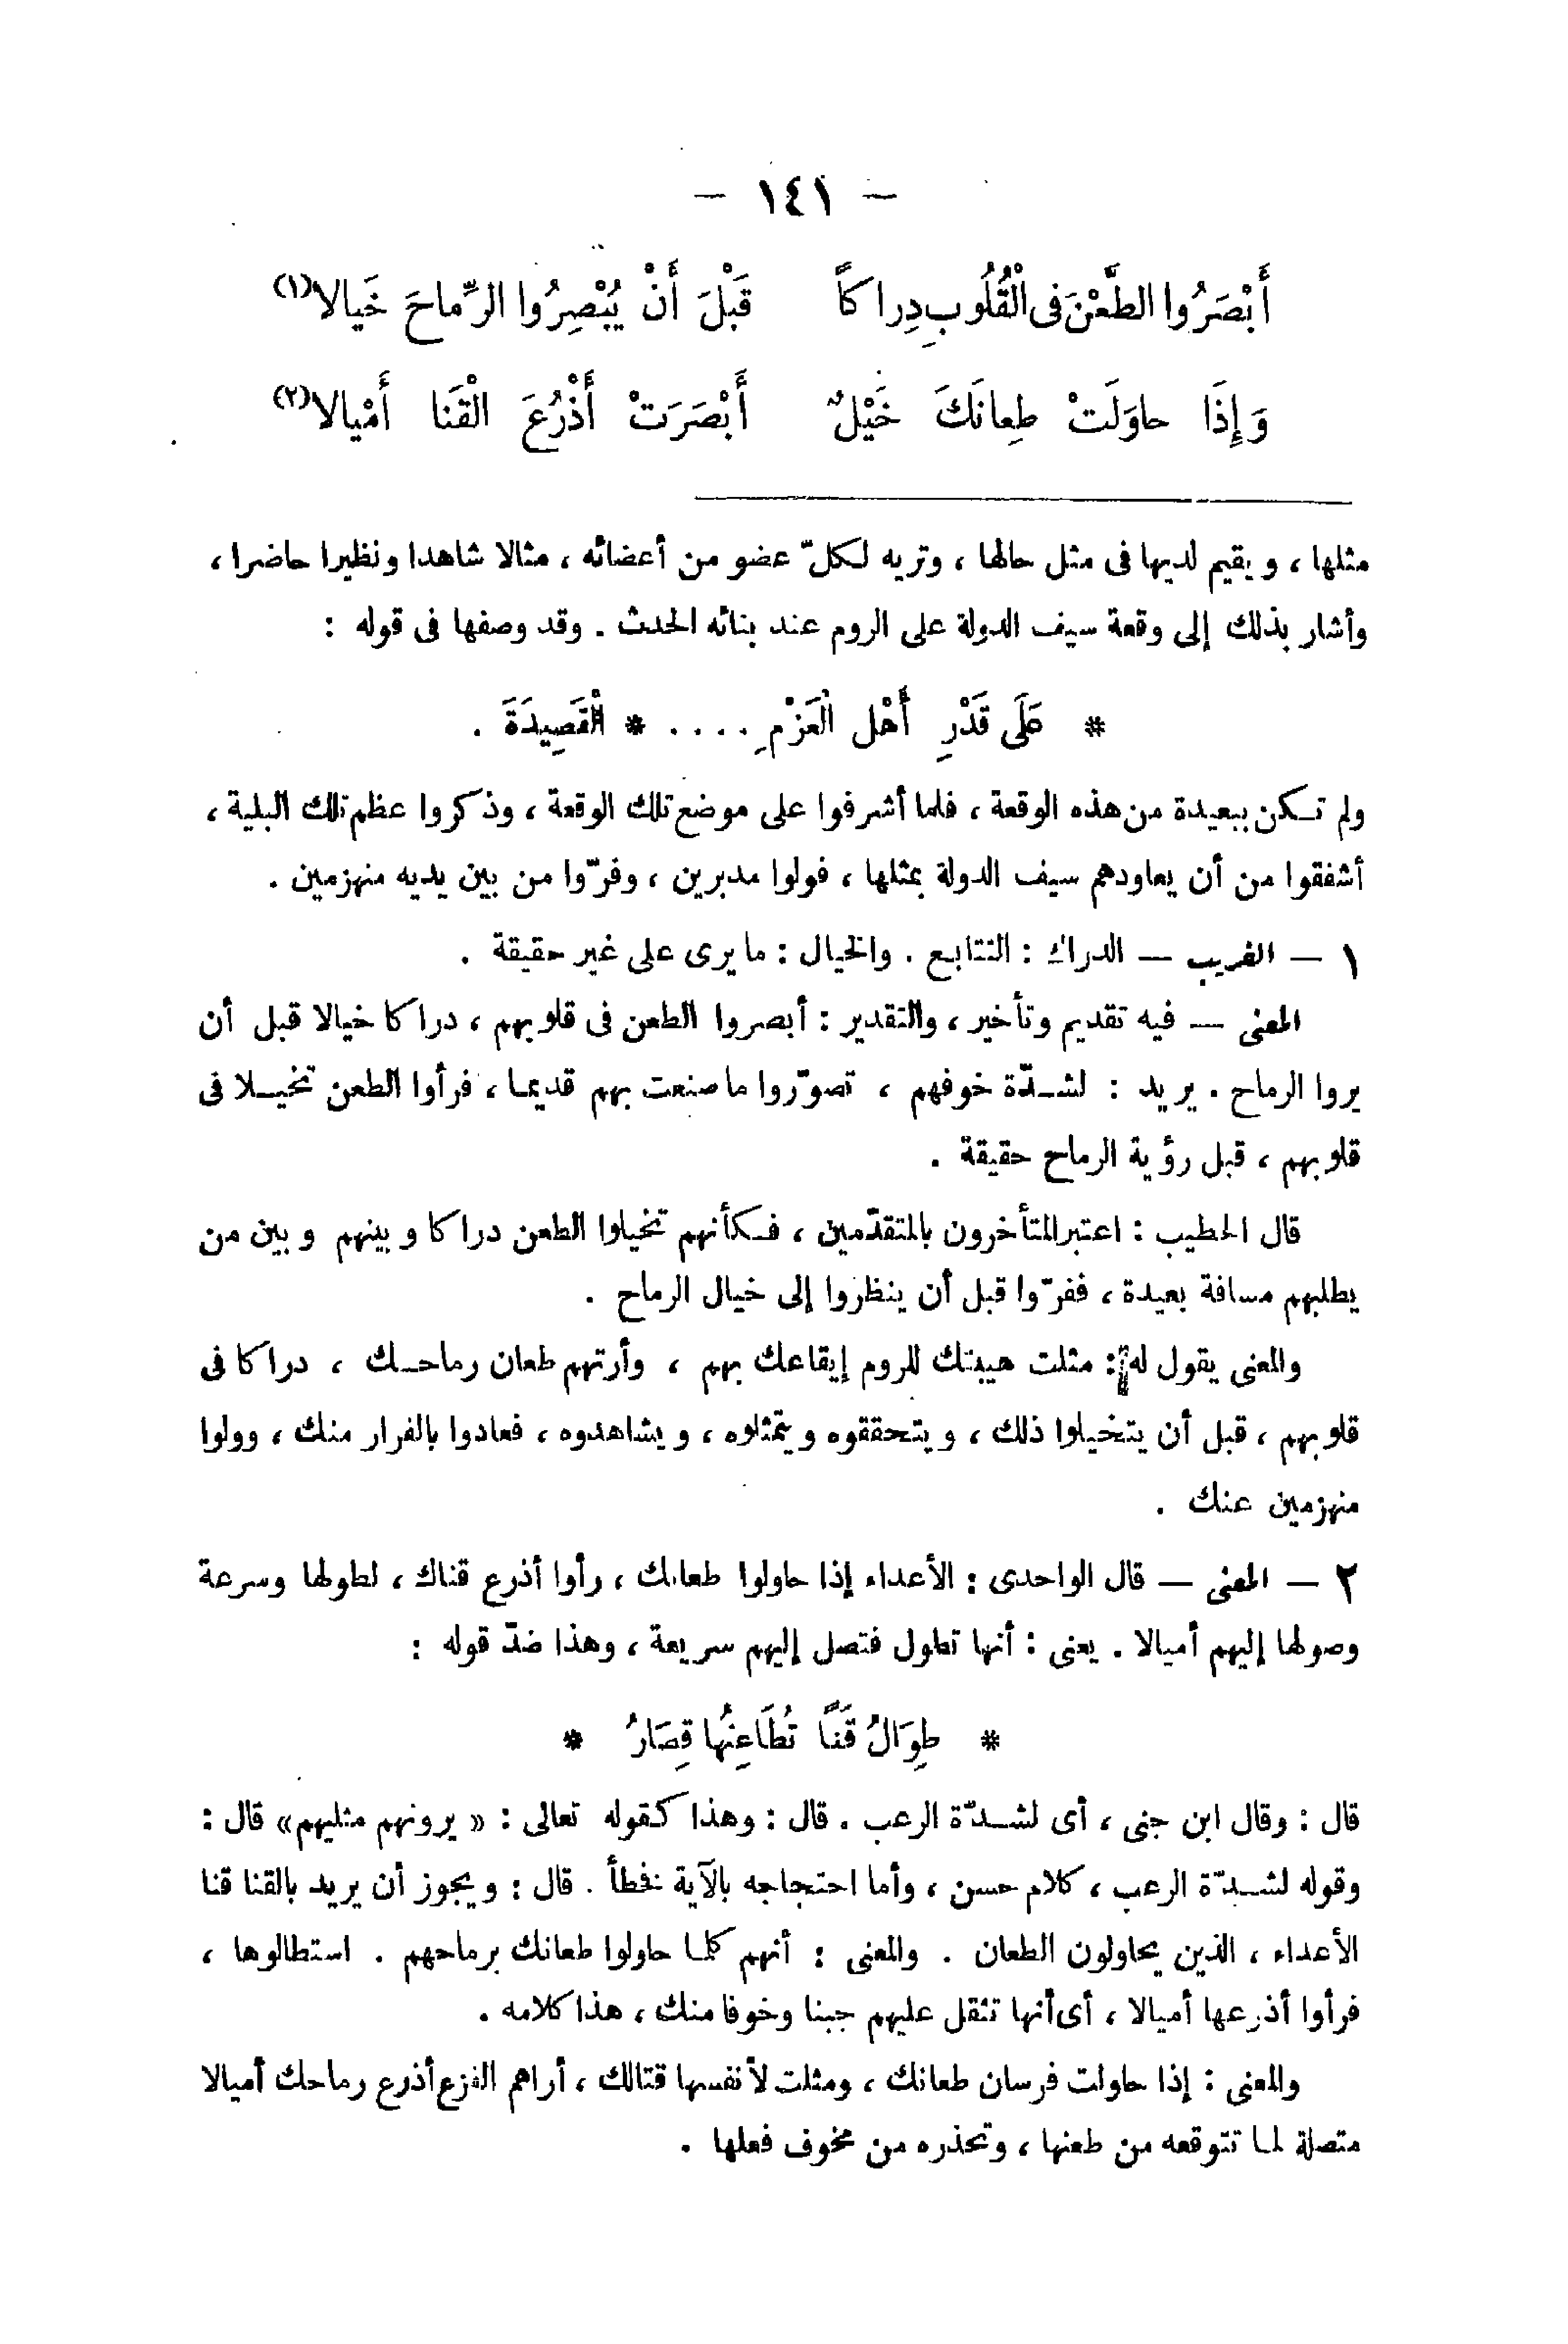 — ١٤١ —
أَبْصَرُوا الطَّعْنَ فى الْقُلُوبِ دِرا كاً قَبْلَ أَنْ يُبْصِرُوا الرِّماحَ خَيالا(١)
وَإِذَا حاوَلَتْ طِعانَكَ خَيْلٌ أَبْصَرَتْ أَذْرُعَ الْقَنا أَمْيالا(٢)
مثلها ، و يقيم لديها فى مثل حالها ، وتريه لكلّ عضو من أعضائه ، مثالا شاهدا ونظيرا حاضرا ،
وأشار بذلك إلى وقعة سيف الدولة على الروم عند بنائه الحدث . وقد وصفها فى قوله :
* عَلَى قَدْرِ أَهْل الْعَزْمِ .... * الْقَصِيدَةَ .
ولم تكن ببعيدة من هذه الوقعة ، فلما أشرفوا على موضع تلك الوقعة ، وذكروا عظم تلك البلية ،
أشفقوا من أن يعاودهم سيف الدولة بمثلها ، فولوا مدبرين ، وفرّوا من بين يديه منهزمين .
١ — الغريب — الدراك : التتابع . والخيال : ما يرى على غير حقيقة .
المعنى — فيه تقديم وتأخير ، والتقدير : أبصروا الطعن فى قلوبهم ، دراكا خيالا قبل أن
يروا الرماح . يريد : لشدّة خوفهم ، تصوّروا ما صنعت بهم قديما ، فرأوا الطعن تخيلا فى
قلوبهم ، قبل رؤية الرماح حقيقة .
قال الخطيب : اعتبر المتأخرون بالمتقدّمين ، فكأنهم تخيلوا الطعن دراكا و بينهم و بين من
يطلبهم مسافة بعيدة ، ففرّوا قبل أن ينظروا إلى خيال الرماح .
والمعنى يقول له : مثلت هيبتك للروم إيقاعك بهم ، وأرتهم طعان رماحك ، دراكا فى
قلوبهم ، قبل أن يتخيلوا ذلك ، و يتحققوه و يتمثلوه ، و يشاهدوه ، فعادوا بالفرار منك ، وولوا
منهزمين عنك .
٢ — المعنى — قال الواحدى : الأعداء إذا حاولوا طعانك ، رأوا أذرع قناك ، لطولها وسرعة
وصولها إليهم أميالا . يعنى : أنها تطول فتصل إليهم سريعة ، وهذا ضدّ قوله :
* طِوَالُ قَناً تُطَاعِنُها قِصَارُ *
قال : وقال ابن جنى ، أى لشدّة الرعب . قال : وهذا كقوله تعالى : « يرونهم مثليهم» قال :
وقوله لشدّة الرعب ، كلام حسن ، وأما احتجاجه بالآية نخطأ . قال : و يجوز أن يريد بالقنا قنا
الأعداء ، الذين يحاولون الطعان . والمعنى : أنهم كلما حاولوا طعانك برماحهم . استطالوها ،
فرأوا أذرعها أميالا ، أى أنها تثقل عليهم جبنا وخوفا منك ، هذا كلامه .
والمعنى : إذا حاولت فرسان طعانك ، ومثلت لأنفسها قتالك ، أراهم الفزع أذرع رماحك أميالا
متصلة لما تتوقعه من طعنها ، وتحذره من مخوف فعلها .